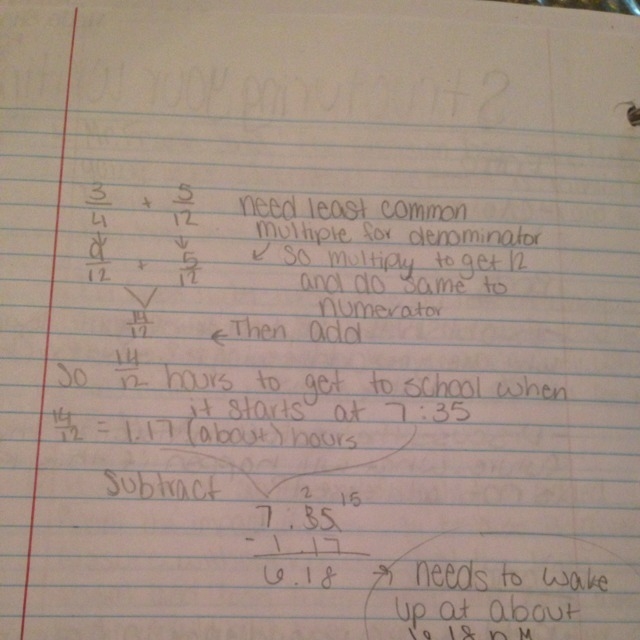 3/4 + 5/12 need least common
multiple for denominator
9/12 + 5/12 ↙ so multipy to get 12
and do same to
numerator
14/12 ← Then add
So 14/12 hours to get to school when
it starts at 7:35
14/12 = 1.17 (about) hours
Subtract
2 15
7.35
- 1.17
6.18 → needs to wake
up at about